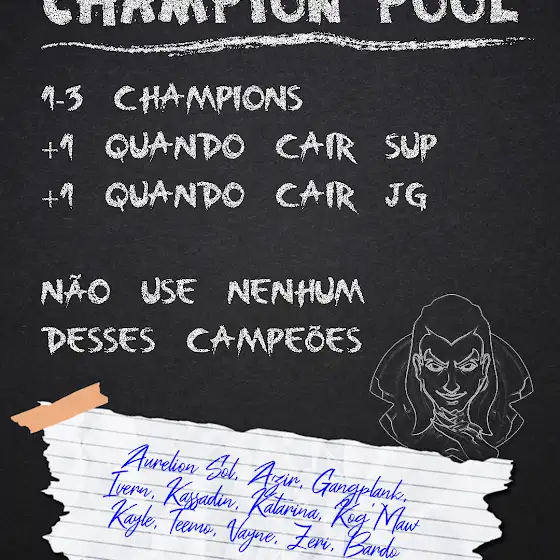 CHAMPION POOL
1-3 CHAMPIONS
+1 QUANDO CAIR SUP
+1 QUANDO CAIR JG
NÃO USE NENHUM
DESSES CAMPEÕES
Aurelion Sol, Azir, Gangplank,
Ivern, Kassadin, Katarina, Kog'Maw
Kayle, Teemo, Vayne, Zeri, Bardo